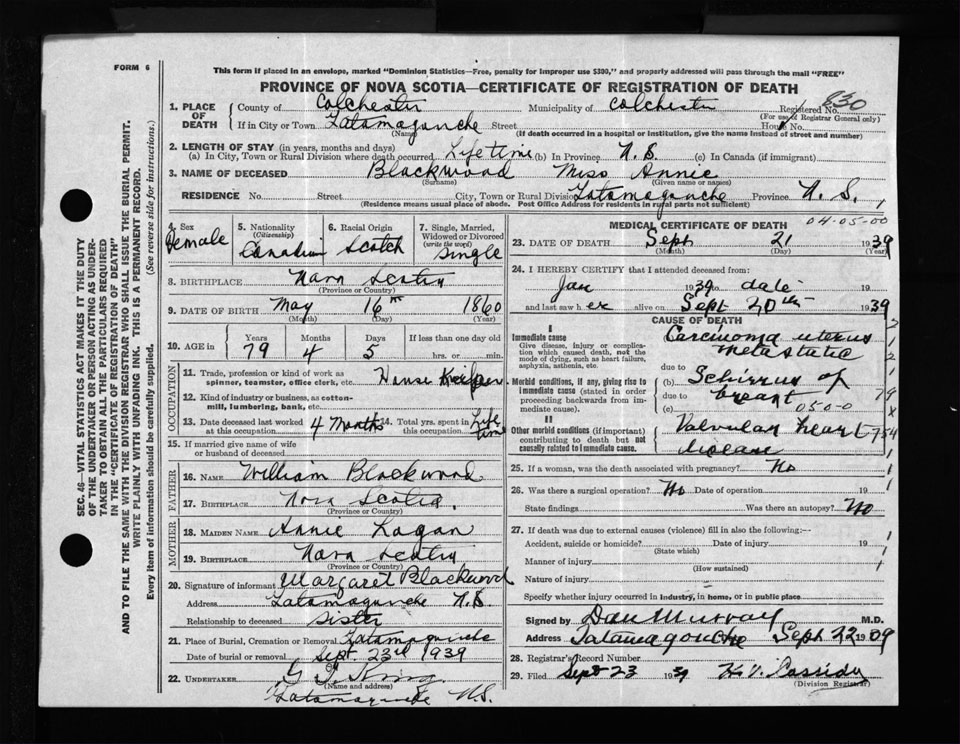 FORM 6
This form if placed in an envelope, marked "Dominion Statistics—Free, penalty for improper use $300," and properly addressed will pass through the mail "FREE"
PROVINCE OF NOVA SCOTIA—CERTIFICATE OF REGISTRATION OF DEATH
SEC. 46—VITAL STATISTICS ACT MAKES IT THE DUTY
OF THE UNDERTAKER OR PERSON ACTING AS UNDER-
TAKER TO OBTAIN ALL THE PARTICULARS REQUIRED
IN THE "CERTIFICATE OF REGISTRATION OF DEATH"
AND TO FILE THE SAME WITH THE DIVISION REGISTRAR WHO SHALL ISSUE THE BURIAL PERMIT.
WRITE PLAINLY WITH UNFADING INK. THIS IS A PERMANENT RECORD.
Every item of information should be carefully supplied. (See reverse side for instructions.)
1. PLACE OF DEATH County of Colchester Municipality of Colchester Registered No. 830
(For use of Registrar General only)
If in City or Town Tatamagouche Street House No.
(Name) (If death occurred in a hospital or institution, give the name instead of street and number)
2. LENGTH OF STAY (in years, months and days)
(a) In City, Town or Rural Division where death occurred Lifetime (b) In Province N.S. (c) In Canada (if immigrant)
3. NAME OF DECEASED Blackwood Miss Annie
(Surname) (Given name or names)
RESIDENCE No. Street City, Town or Rural Division Tatamagouche Province N.S.
(Residence means usual place of abode. Post Office Address for residents in rural parts not sufficient)
4. Sex Female
5. Nationality (Citizenship) Canadian
6. Racial Origin Scotch
7. Single, Married, Widowed or Divorced (write the word) Single
8. BIRTHPLACE Nova Scotia
(Province or Country)
9. DATE OF BIRTH May 16th 1860
(Month) (Day) (Year)
10. AGE in Years Months Days If less than one day old
79 4 5 hrs. or min.
OCCUPATION
11. Trade, profession or kind of work as spinner, teamster, office clerk, etc. House Keeper
12. Kind of industry or business, as cotton-mill, lumbering, bank, etc.
13. Date deceased last worked at this occupation 4 Months 14. Total yrs. spent in this occupation Life time
15. If married give name of wife or husband of deceased
FATHER
16. NAME William Blackwood
17. BIRTHPLACE Nova Scotia
(Province or Country)
MOTHER
18. MAIDEN NAME Annie Logan
19. BIRTHPLACE Nova Scotia
(Province or Country)
20. Signature of informant Margaret Blackwood
Address Tatamagouche N.S.
Relationship to deceased Sister
21. Place of Burial, Cremation or Removal Tatamagouche
Date of burial or removal Sept. 23rd 1939
22. UNDERTAKER
(Name and address)
Tatamagouche N.S.
04-05-00
MEDICAL CERTIFICATE OF DEATH
23. DATE OF DEATH Sept 21 1939
(Month) (Day) (Year)
24. I HEREBY CERTIFY that I attended deceased from:
Jan 1939 to date 19
and last saw her alive on Sept 20th 1939
CAUSE OF DEATH
I
Immediate cause
Give disease, injury or complication which caused death, not the mode of dying, such as heart failure, asphyxia, asthenia, etc.
Carcinoma uterus
metastatic
due to
Morbid conditions, if any, giving rise to immediate cause (stated in order proceeding backwards from immediate cause).
(b) Schirrus of
due to breast
(c) 050-0
II
Other morbid conditions (if important) contributing to death but not causally related to immediate cause.
Valvular heart
disease
25. If a woman, was the death associated with pregnancy? No
26. Was there a surgical operation? No Date of operation 19
State findings Was there an autopsy? No
27. If death was due to external causes (violence) fill in also the following:—
Accident, suicide or homicide? Date of injury 19
(State which)
Manner of injury
(How sustained)
Nature of injury
Specify whether injury occurred in industry, in home, or in public place
Signed by Dan Murray M.D.
Address Tatamagouche Sept 22 1909
28. Registrar's Record Number
29. Filed Sept 23 1939 Cassidy
(Division Registrar)